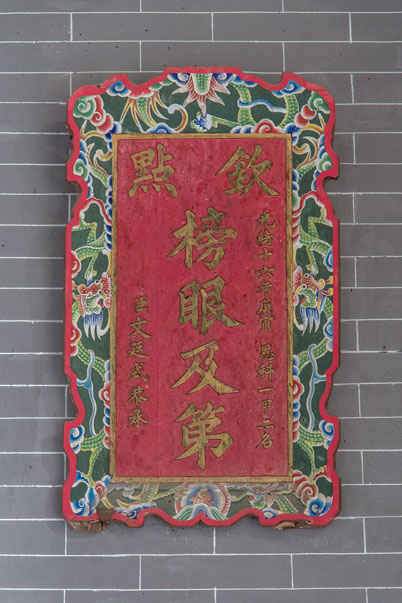 欽點
光緒十六年庚寅 恩科一甲二名
榜眼及第
臣文廷式恭承